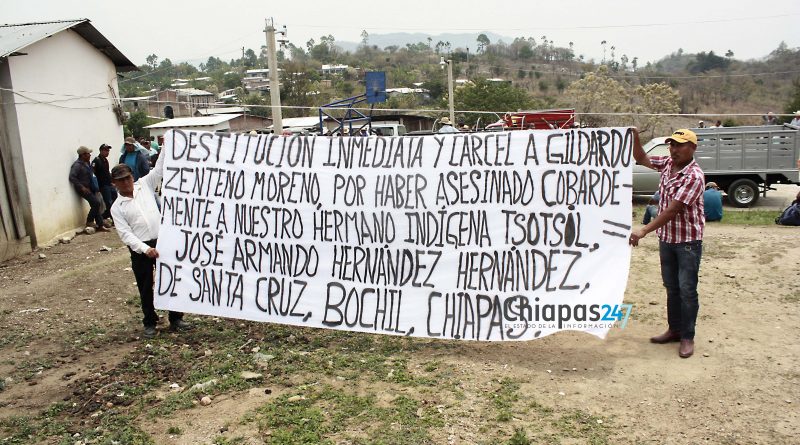 DESTITUCIÓN INMEDIATA Y CARCEL A GILDARDO
ZENTENO MORENO, POR HABER ASESINADO COBARDE-
MENTE A NUESTRO HERMANO INDÍGENA TSOTSOL, =
JOSÉ ARMANDO HERNÁNDEZ HERNÁNDEZ,
DE SANTA CRUZ, BOCHIL, CHIAPAS
Chiapas247
EL ESTADO DE LA INFORMACIÓN